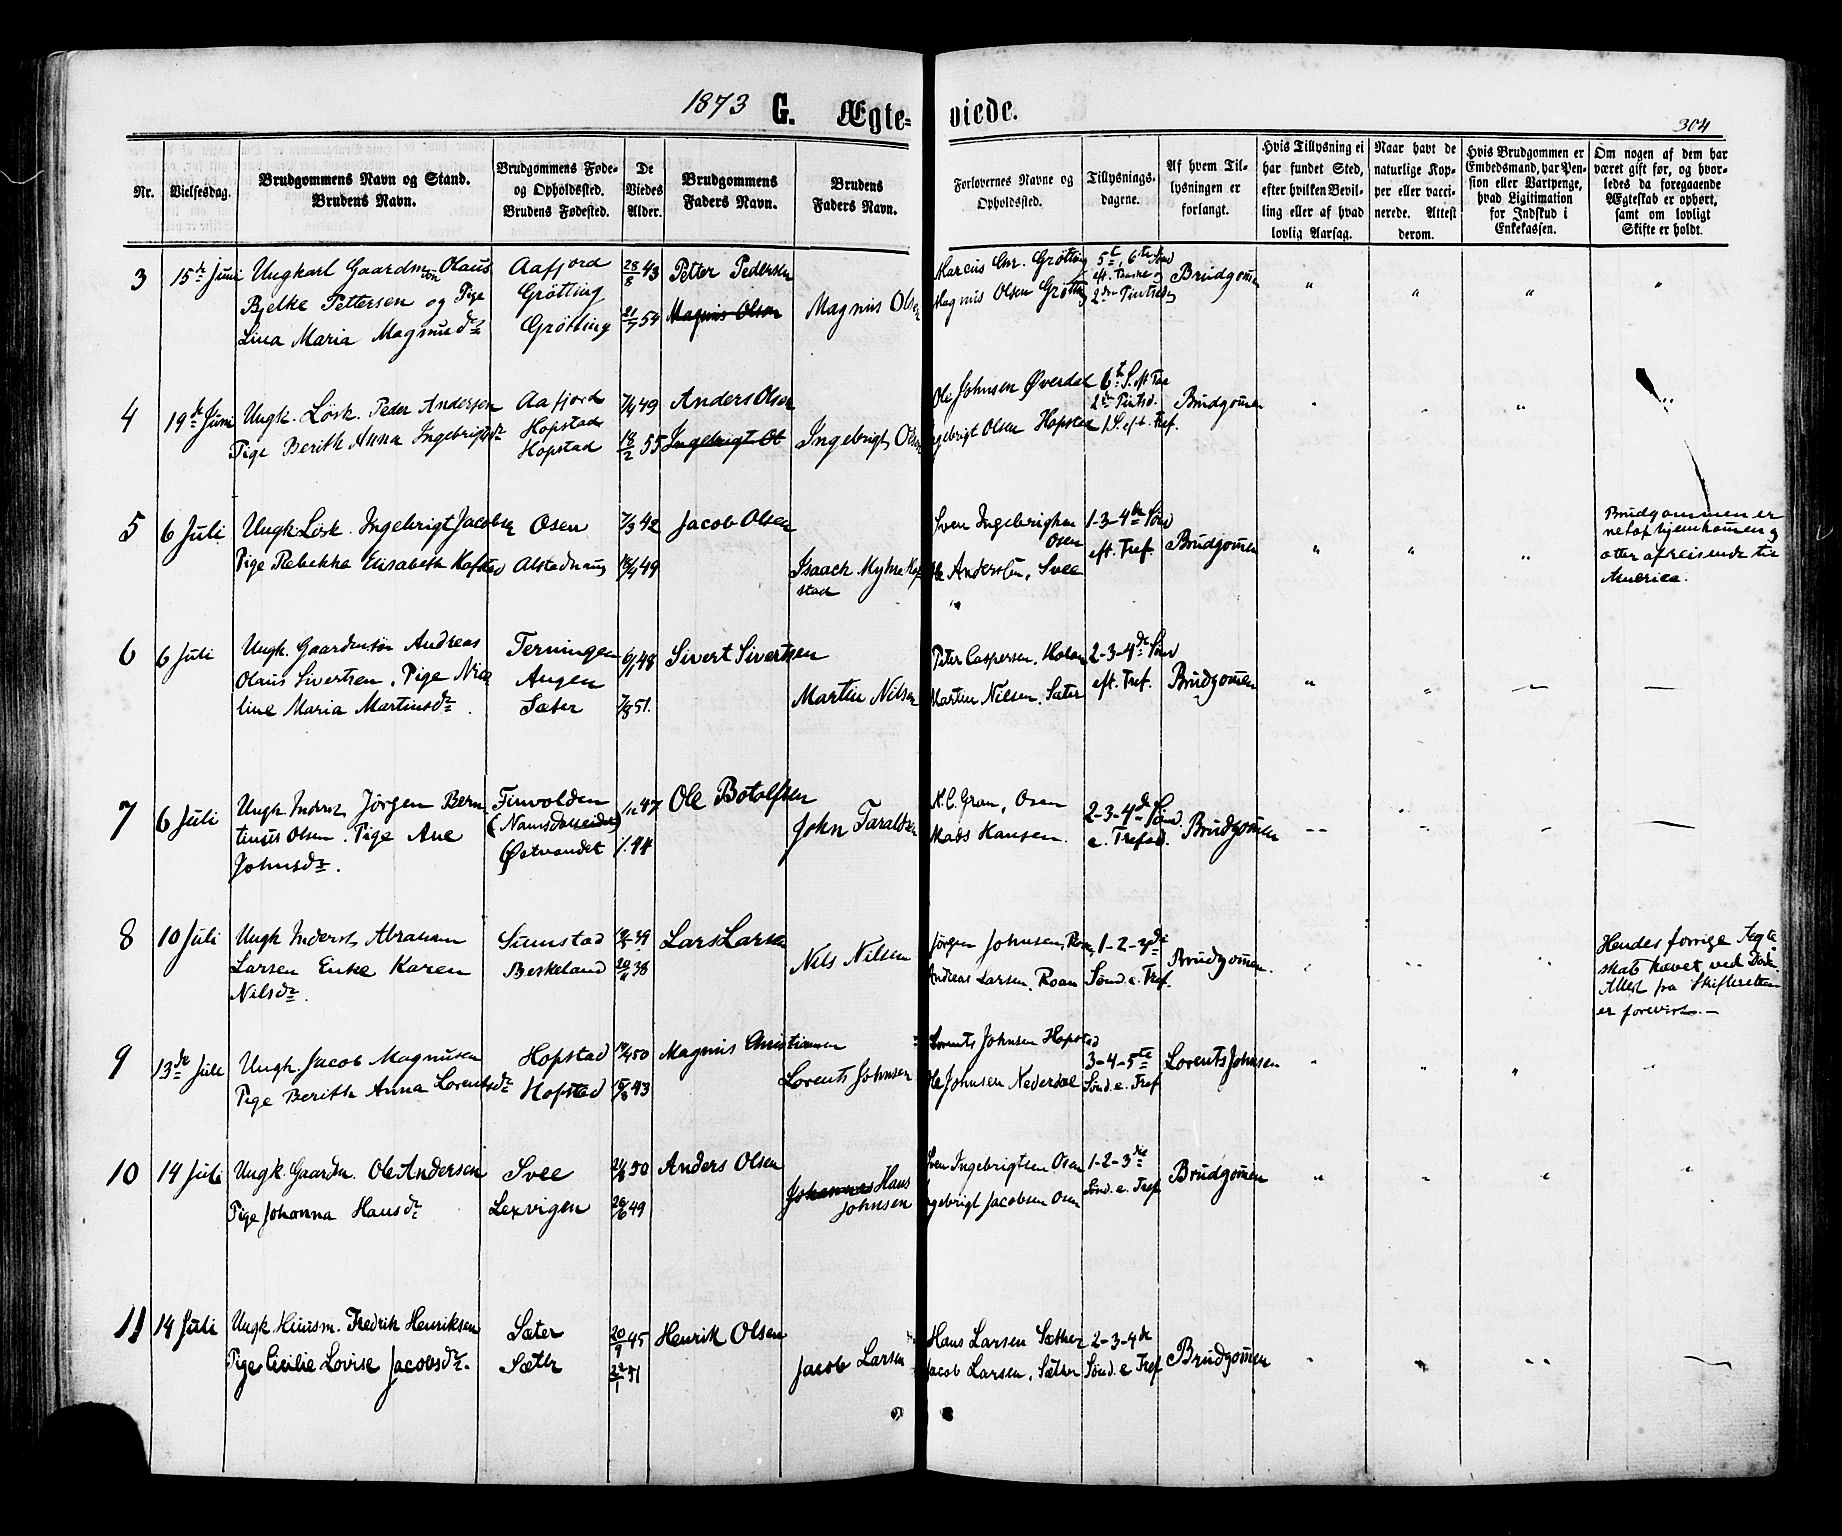 1873 G. Ægteviede.
304
Nr.
Vielsesdag.
Brudgommens Navn og Stand.
Brudens Navn.
Brudgommens Føde-
og Opholdssted.
Brudens Fødested.
De
Viedes
Alder.
Brudgommens
Faders Navn.
Brudens
Faders Navn.
Forlovernes Navne og
Opholdssted.
Tillysnings-
dagene.
Af hvem Til-
lysningen er
forlangt.
Hvis Tillysning ei
har fundet Sted,
efter hvilken Bevil-
ling eller af hvad
lovlig Aarsag.
Naar havt de
naturlige Kop-
per eller vacci-
nerede. Attest
derom.
Hvis Brudgommen er
Embedsmand, har Pen-
sion eller Vartpenge,
hvad Ligitimation
for Indskud i
Enkekassen.
Om nogen af dem har
været gift før, og hvor-
ledes da foregaaende
Ægteskab er ophørt,
samt om lovligt
Skifte er holdt.
3
15de Juni
Ungkarl Gaardm. søn Olaus
Bjelke Pettersen og Pige
Lina Maria Magnusdr
Aafjord
Grötting
Grötting
28/8 43
21/7 54
Petter Pedersen
Magnus Olsen
Magnus Olsen
Marcus Chr. Grötting
Magnus Olsen Grötting
5te, 6te Sønd
eft. Paaske og
2den Pintsed.
Brudgomen
4
19de Juni
Ungk. Løsk. Peder Andersen
Pige Berith Anna Ingebrigtsdr
Aafjord
Hopstad
Hopstad
7/4 49
18/2 55
Anders Olsen
Ingebrigt Ol
Ingebrigt Olsen
Ole Johnsen Øverdal
Ingebrigt Olsen Hopstad
6te S. eft Paa
2den Pintsd.
1 S. eft. Tref.
Brudgomen
5
6 Juli
Ungk. Løsk. Ingebrigt Jacobsen
Pige Rebekka Elisabeth Hofstad
Osen
Alstadhaug
7/3 42
49
Jacob Olsen
Isaach Myhre Hof
stad
Sven Ingebrigtsen
Osen
Ole Andersen, Svee
1-3-4de Sønd
eft. Tref.
Brudgomen
Brudgommen er
netop hjemkommen og
atter afreisende til
America.
6
6 Juli
Ungk. Gaardmsøn Andreas
Olaus Sivertsen. Pige Nico
line Maria Martinsdr.
Terningen
Angen
Sæter
6/1 48
7/8 51.
Sivert Sivertsen
Martin Nilsen
Peter Caspersen, Holan
Martin Nilsen, Sæter
2-3-4de Sønd
eft. Tref.
Brudgomen
7
6 Juli
Ungk Inderst Jörgen Bern
tinus Olsen. Pige Ane
Johnsdr.
Finvolden
(Namsdalseidet)
Østvandet
47
44
Ole Botolfsen
John Taraldsen
H. C. Gran, Osen
Mads Hansen.
2-3-4de Sønd.
e. Trefod.
Brudgomen
8
10 Juli
Ungk Inderst Abraham
Larsen Enke Karen
Nilsdr.
Sumstad
Beskeland
39
20/11 38
Lars Larsen
Nils Nilsen
Jørgen Johnsen, Roan
Andreas Larsen, Roan
1-2-3die
Sønd. e. Tref.
Brudgomen.
Hendes forrige Ægte
skab hævet ved Død.
Attest fra Skifteretten
er forevist.-
9
13de Juli
Ungk Jacob Magnusen
Pige Berith Anna Lorentsdr
Hopstad
Hopstad
50
43
Magnus Christiansen
Lorents Johnsen
Lorents Johnsen Hopstad
Ole Johnsen Nederdal
3-4-5te
Sønd. e. Tref
Lorents Johnsen
10
14 Juli
Ungk. Gaardm. Ole Andersen
Pige Johanna Hansdr
Svee
Lexvigen
50
49
Anders Olsen
Johannes Hans
Johnsen
Sven Ingebrigtsen Osen
Ingebrigt Jacobsen Osen
1-2-3die
Sønd. e. Tref
Brudgomen
11
14 Juli
Ungk. Huusm. Fredrik Henriksen
Pige Cicilie Lovise Jacobsdr.
Sæter
Sæter
20/9 45
22/1 51
Henrik Olsen
Jacob Larsen
Hans Larsen Sæther
Jacob Larsen, Sæther
2-3-4de
Sønd. e Tref
Brudgomen